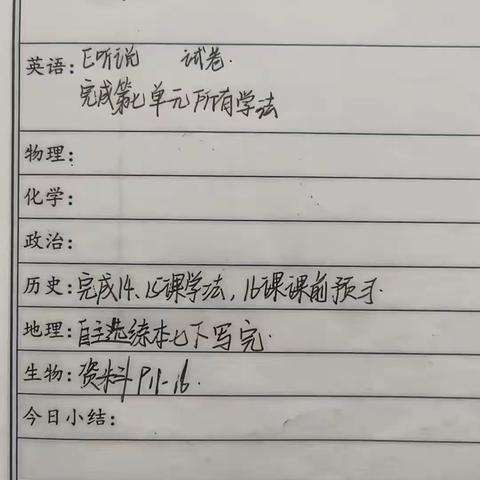 英语:E听说 试卷.
完成第七单元所有学法
物理:
化学:
政治:
历史:完成14、15课学法,16课课前预习.
地理:自主选练本七下写完.
生物:资料P11-16.
今日小结: